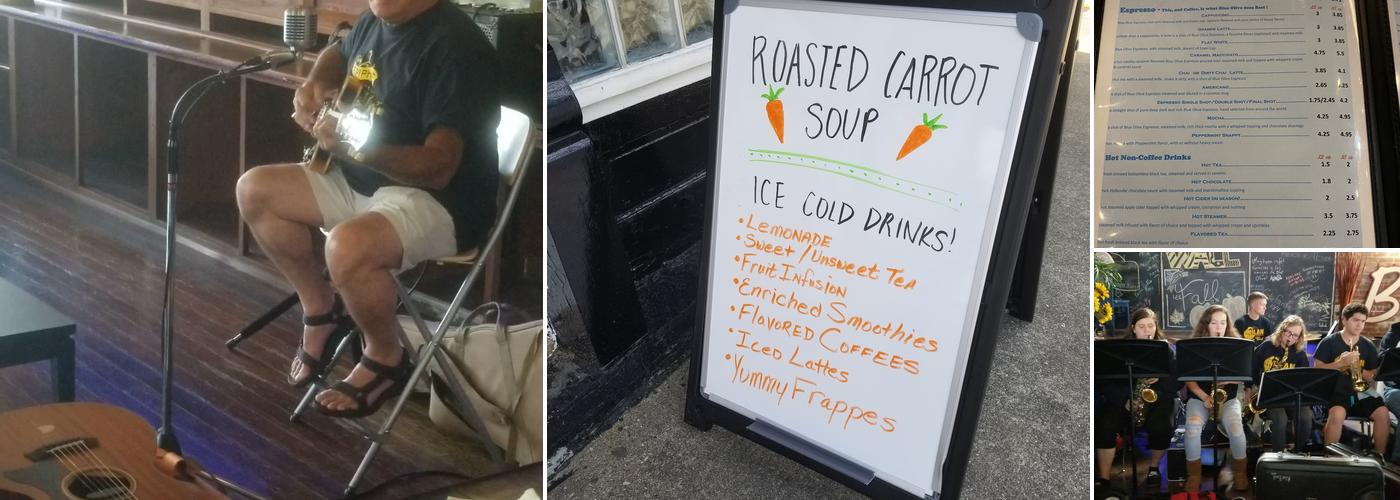 ROASTED CARROT
SOUP
ICE COLD DRINKS!
• LEMONADE
• Sweet/Unsweet Tea
• Fruit Infusion
• Enriched Smoothies
• FLAVORED COFFEES
• Iced Lattes
• Yummy Frappes
Espresso - This, and Coffee, is what Blue Olive does Best!
CAPPUCCINO 3 3.85
GRANDE LATTE 3 3.85
FLAT WHITE 3 3.85
CARAMEL MACCHIATO 4.75 5.5
CHAI OR DIRTY CHAI LATTE 3.85 4.1
AMERICANO 2.65
ESPRESSO SINGLE SHOT/DOUBLE SHOT/FINAL SHOT 1.75/2.45 4.2
MOCHA 4.25 4.95
PEPPERMINT SNAPPY 4.25 4.95
Hot Non-Coffee Drinks 12 oz 16 oz
HOT TEA 1.5 2
HOT CHOCOLATE 1.8 2
HOT CIDER (IN SEASON) 2 2.5
HOT STEAMER 3.5 3.75
FLAVORED TEA 2.25 2.75
Fall
B